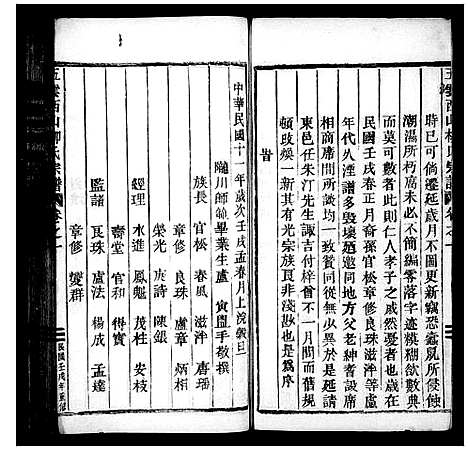 時已可倘遷延歲月不圖更新竊恐蠹鼠所侵蝕
潮濕所朽腐未必不簡編零落字迹糢糊欲數典
而滋之憂者此則仁人孝子之戚然憂者也歲在
民國壬戌春正月裔孫官松章修良珠滋泮等慮
年代久湮譜多毀壞廼邀同地方父老紳耆設席
相商席間所談均一一贊同從無少異於是延請
東邑任朱汀先生諏吉付梓曾不一月間而舊規
頓改煥一新其有光宗族良非淺尠也是爲序
旹
中華民國十一年歲次壬戌孟春月上浣穀旦
隴川師範畢業生盧寅闓手敬撰
族長 官松 春風 滋泮 唐璠
章修 良珠 盧章 炳相
榮光 庚詩 陳銀
經理 水進 鳳魁 茂柱 安枝
壽堂 官和 得實
監譜 良珠 盧法 楊成 孟達
章修 變群
五雲西山柳氏宗譜 卷之一
民國壬戌年重修